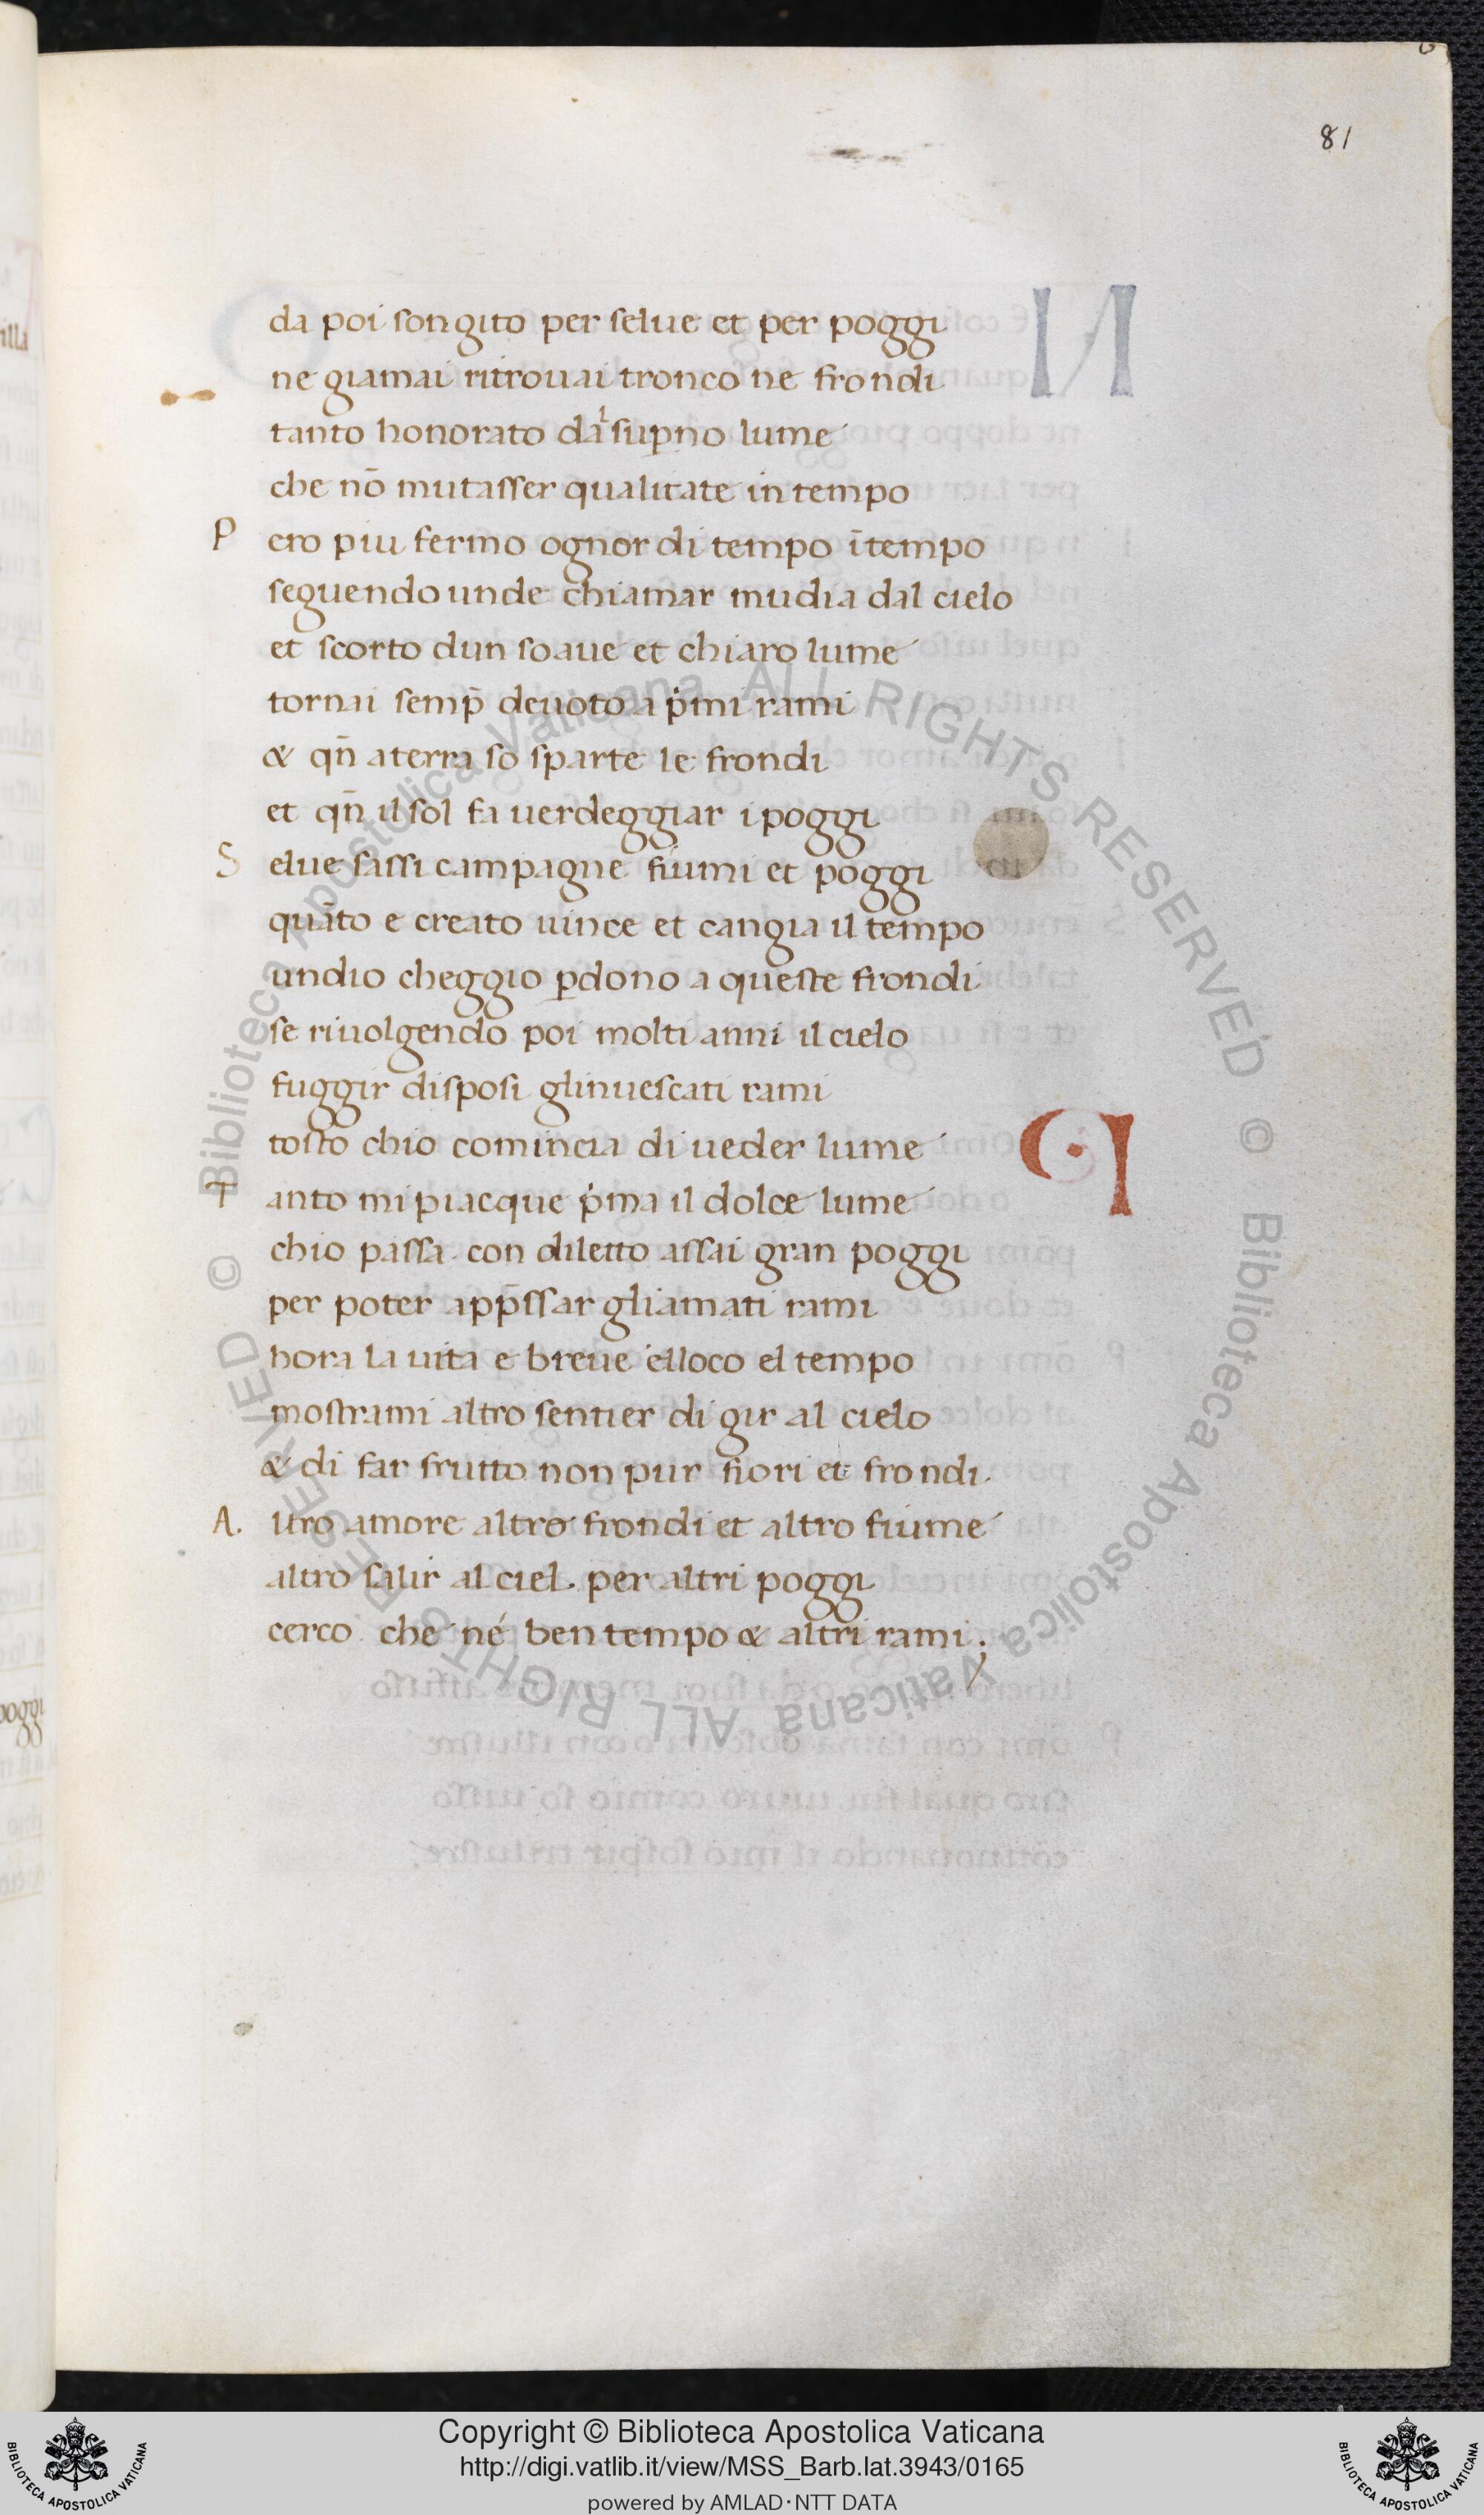 81
da poi son gito per selue et per poggi
ne giamai ritrouai tronco ne frondi
tanto honorato dal suꝑno lume
che nō mutasser qualitate in tempo
P ero piu fermo ognor di tempo ī tempo
seguendo unde chiamar mudia dal cielo
et scorto dun soaue et chiaro lume
tornai semp̄ deuoto a pⁱmi rami
& qn̄ a terra so sparte le frondi
et qn̄ il sol fa uerdeggiar i poggi
S elue sassi campagne fiumi et poggi
quāto e creato uince et cangia il tempo
undio cheggio ꝑdono a queste frondi
se riuolgendo poi molti anni il cielo
fuggir disposi glinuescati rami
tosto chio comincia di ueder lume
T anto mi piacque pⁱma il dolce lume
chio passa. con diletto assai gran poggi
per poter app̄ssar gliamati rami
hora la uita e breue elloco el tempo
mostrami altro sentier di gir al cielo
& di far frutto non pur fiori et frondi.
A. ltro amore altro frondi et altro fiume
altro salir al ciel. per altri poggi
cerco che né ben tempo & altri rami;
© Biblioteca Apostolica Vaticana ALL RIGHTS RESERVED
© Biblioteca Apostolica Vaticana ALL RIGHTS RESERVED
Copyright © Biblioteca Apostolica Vaticana
http://digi.vatlib.it/view/MSS_Barb.lat.3943/0165
powered by AMLAD·NTT DATA
BIBLIOTECA APOSTOLICA VATICANA
BIBLIOTECA APOSTOLICA VATICANA